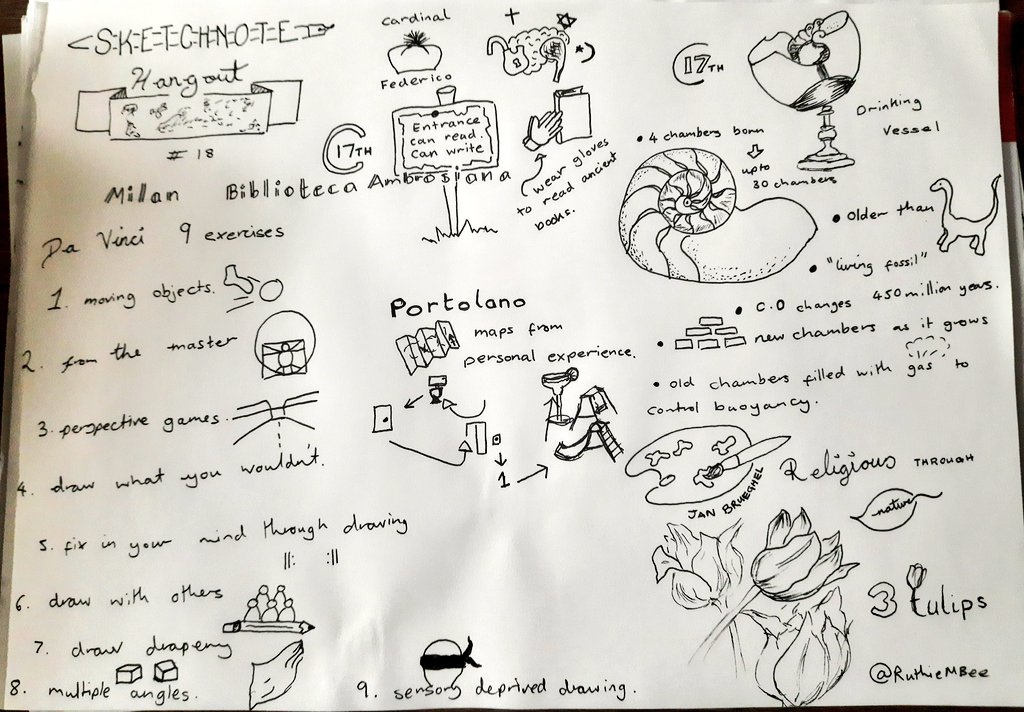 S-K-E-T-C-H-N-O-T-E
Hangout
# 18
Cardinal
Federico
17TH
Entrance
can read.
can write
wear gloves
to read ancient
books.
Milan Biblioteca Ambrosiana
Da Vinci 9 exercises
1. moving objects.
2. from the master
3. perspective games.
4. draw what you wouldn't.
5. fix in your mind through drawing
6. draw with others
7. draw drapery
8. multiple angles.
9. sensory deprived drawing.
Portolano
maps from
personal experience.
1
17TH
Drinking
Vessel
• 4 chambers born
upto
30 chambers
• Older than
• "living fossil"
• C.O changes 450 million years.
• new chambers as it grows
• old chambers filled with gas to
control buoyancy.
JAN BRUEGHEL
Religious THROUGH
native
3 tulips
@RuthieMBee